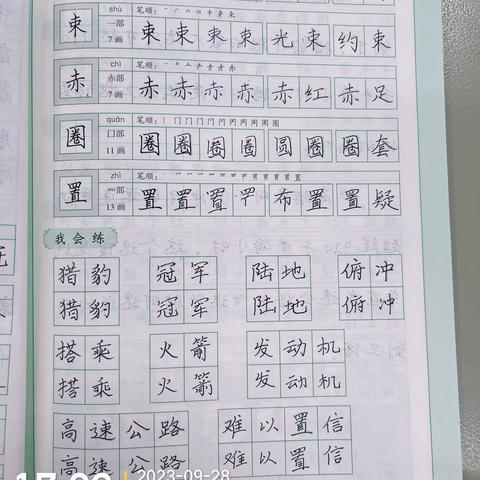 shù
束 一部 7 画 笔顺:
束 束 束 束 光 束 约 束
chì
赤 赤部 7 画 笔顺:
赤 赤 赤 赤 赤 红 赤 足
quān
圈 口部 11 画 笔顺:
圈 圈 圈 圈 圆 圈 圈 套
zhì
置 罒部 13 画 笔顺:
置 置 置 布 置 置 疑
我会练
猎豹 冠军 陆地 俯冲
猎豹 冠军 陆地 俯冲
搭乘 火箭 发动机
搭乘 火箭 发动机
高速公路 难以置信
高速公路 难以置信
2023-09-28